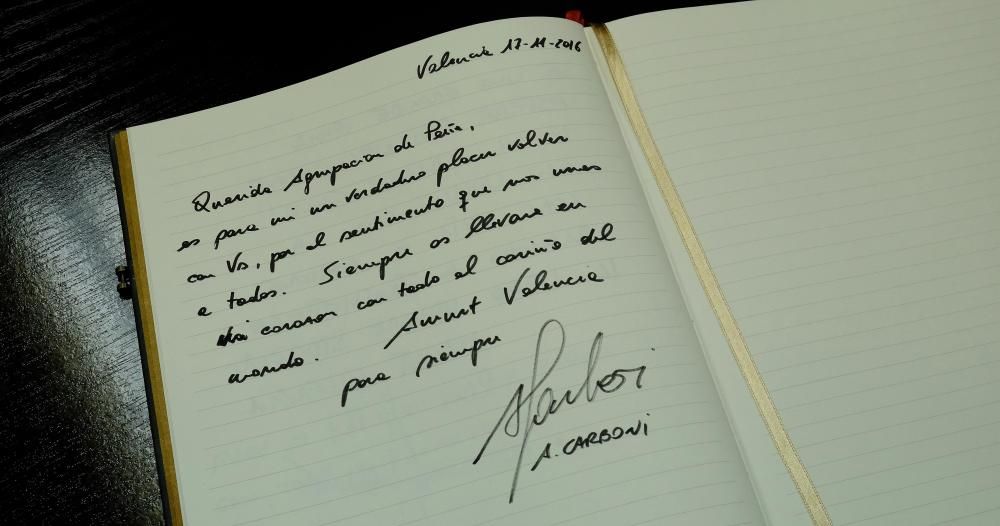 Valencia 17-11-2016
Querida Agrupacion de Peñas,
es para mi un verdadero placer volver
con Vs, por el sentimento que nos unes
a todos. Siempre os llevare en
mi corazon con todo el cariño del
mondo. Amunt Valencia
para siempre
A. CARBONI